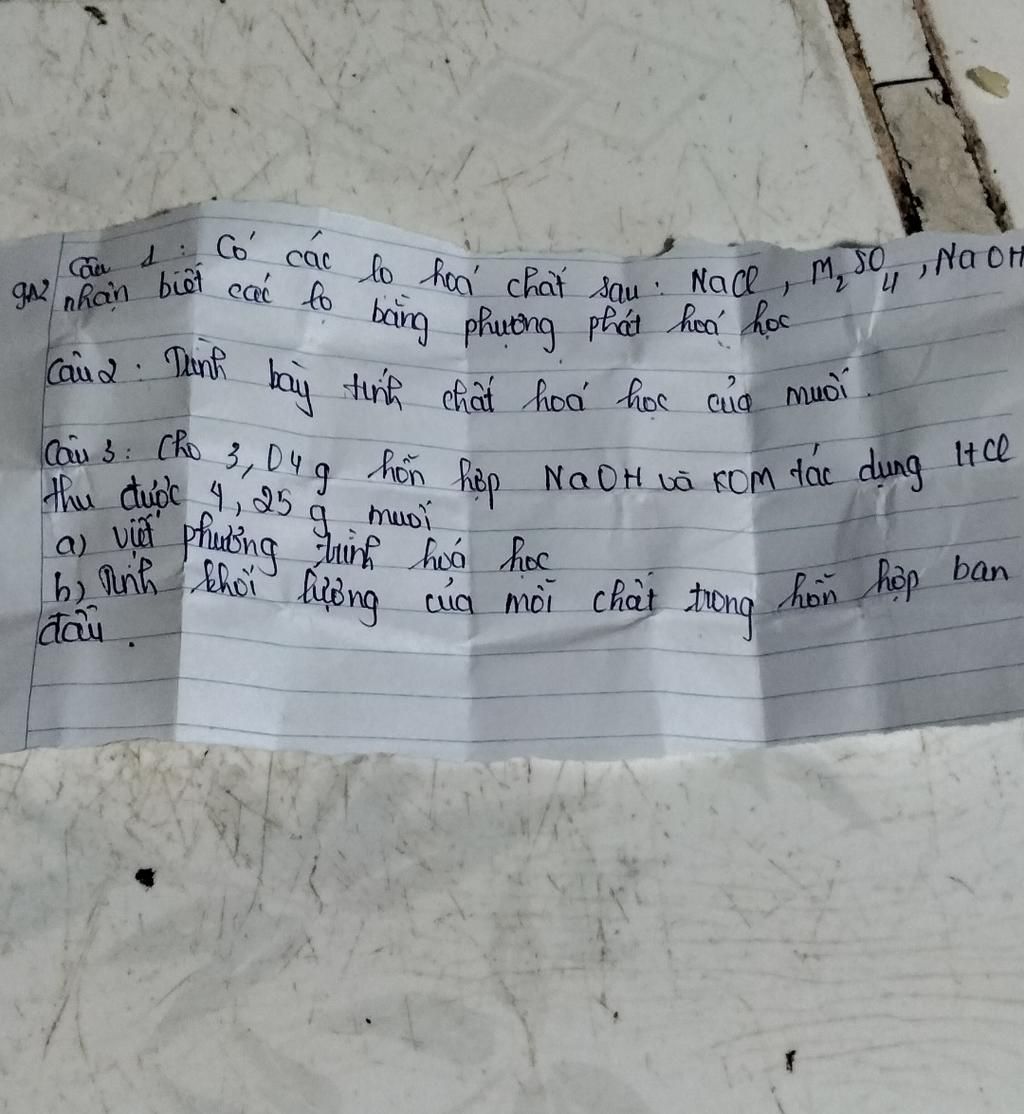 Câu 1: Có các lọ hoá chất sau: NaCl, M₂SO₄, NaOH
nhận biết các lọ bằng phương phát hoá học
Câu 2: Trình bày tính chất hoá học của muối.
Câu 3: Cho 3,04g hỗn hợp NaOH và KOM tác dụng HCl
thu được 4,25g muối
a) viết phương trình hoá học
b) Tính khối lượng của mỗi chất trong hỗn hợp ban
đầu.